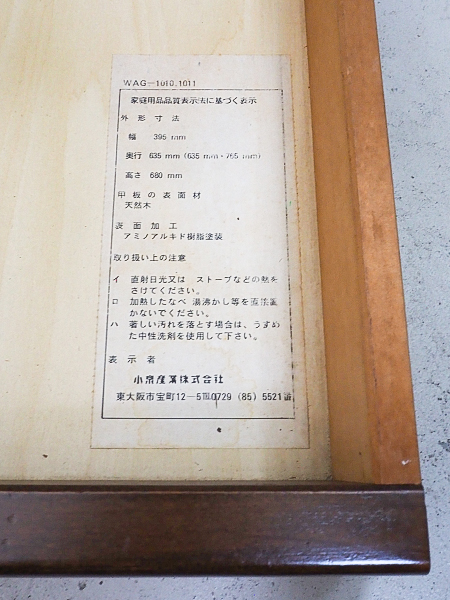 WAG-1010.1011
家庭用品品質表示法に基づく表示
外形寸法
幅 395 mm
奥行 635 mm (635 mm・765 mm)
高さ 680 mm
甲板の表面材
天然木
表面加工
アミノアルキド樹脂塗装
取り扱い上の注意
イ 直射日光又は ストーブなどの熱を
さけてください。
ロ 加熱したなべ 湯沸かし等を直接置
かないでください。
ハ 著しい汚れを落とす場合は、うすめ
た中性洗剤を使用して下さい。
表示者
小泉産業株式会社
東大阪市宝町12-5 0729 (85) 5521番